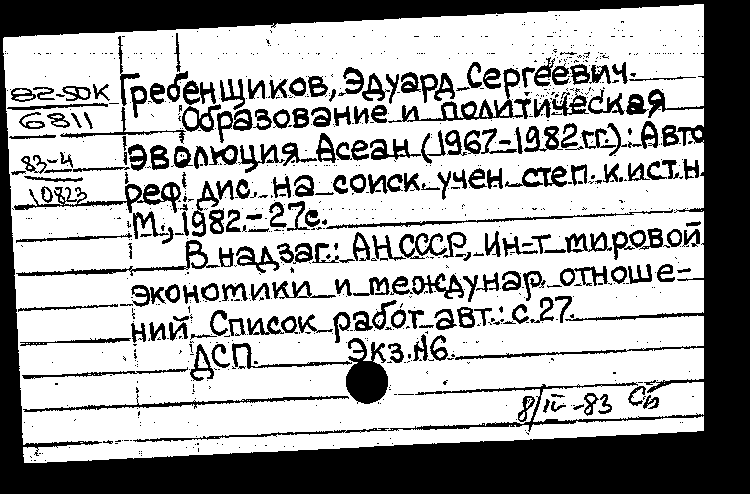 82-50К
6811
83-4
10823
Гребенщиков, Эдуард Сергеевич.
Образование и политическая
эволюция Асеан (1967-1982гг.): Авто
реф. дис. на соиск. учен. степ. к.ист.н.
М., 1982.-27с.
В надзаг.: АН СССР, Ин-т мировой
экономики и междунар. отноше-
ний. Список работ авт.: с.27.
ДСП. Экз.№6.
8/IV-83 Сб